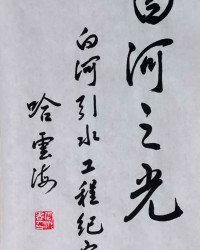 白河之光
白河引水工程纪实
哈雲海